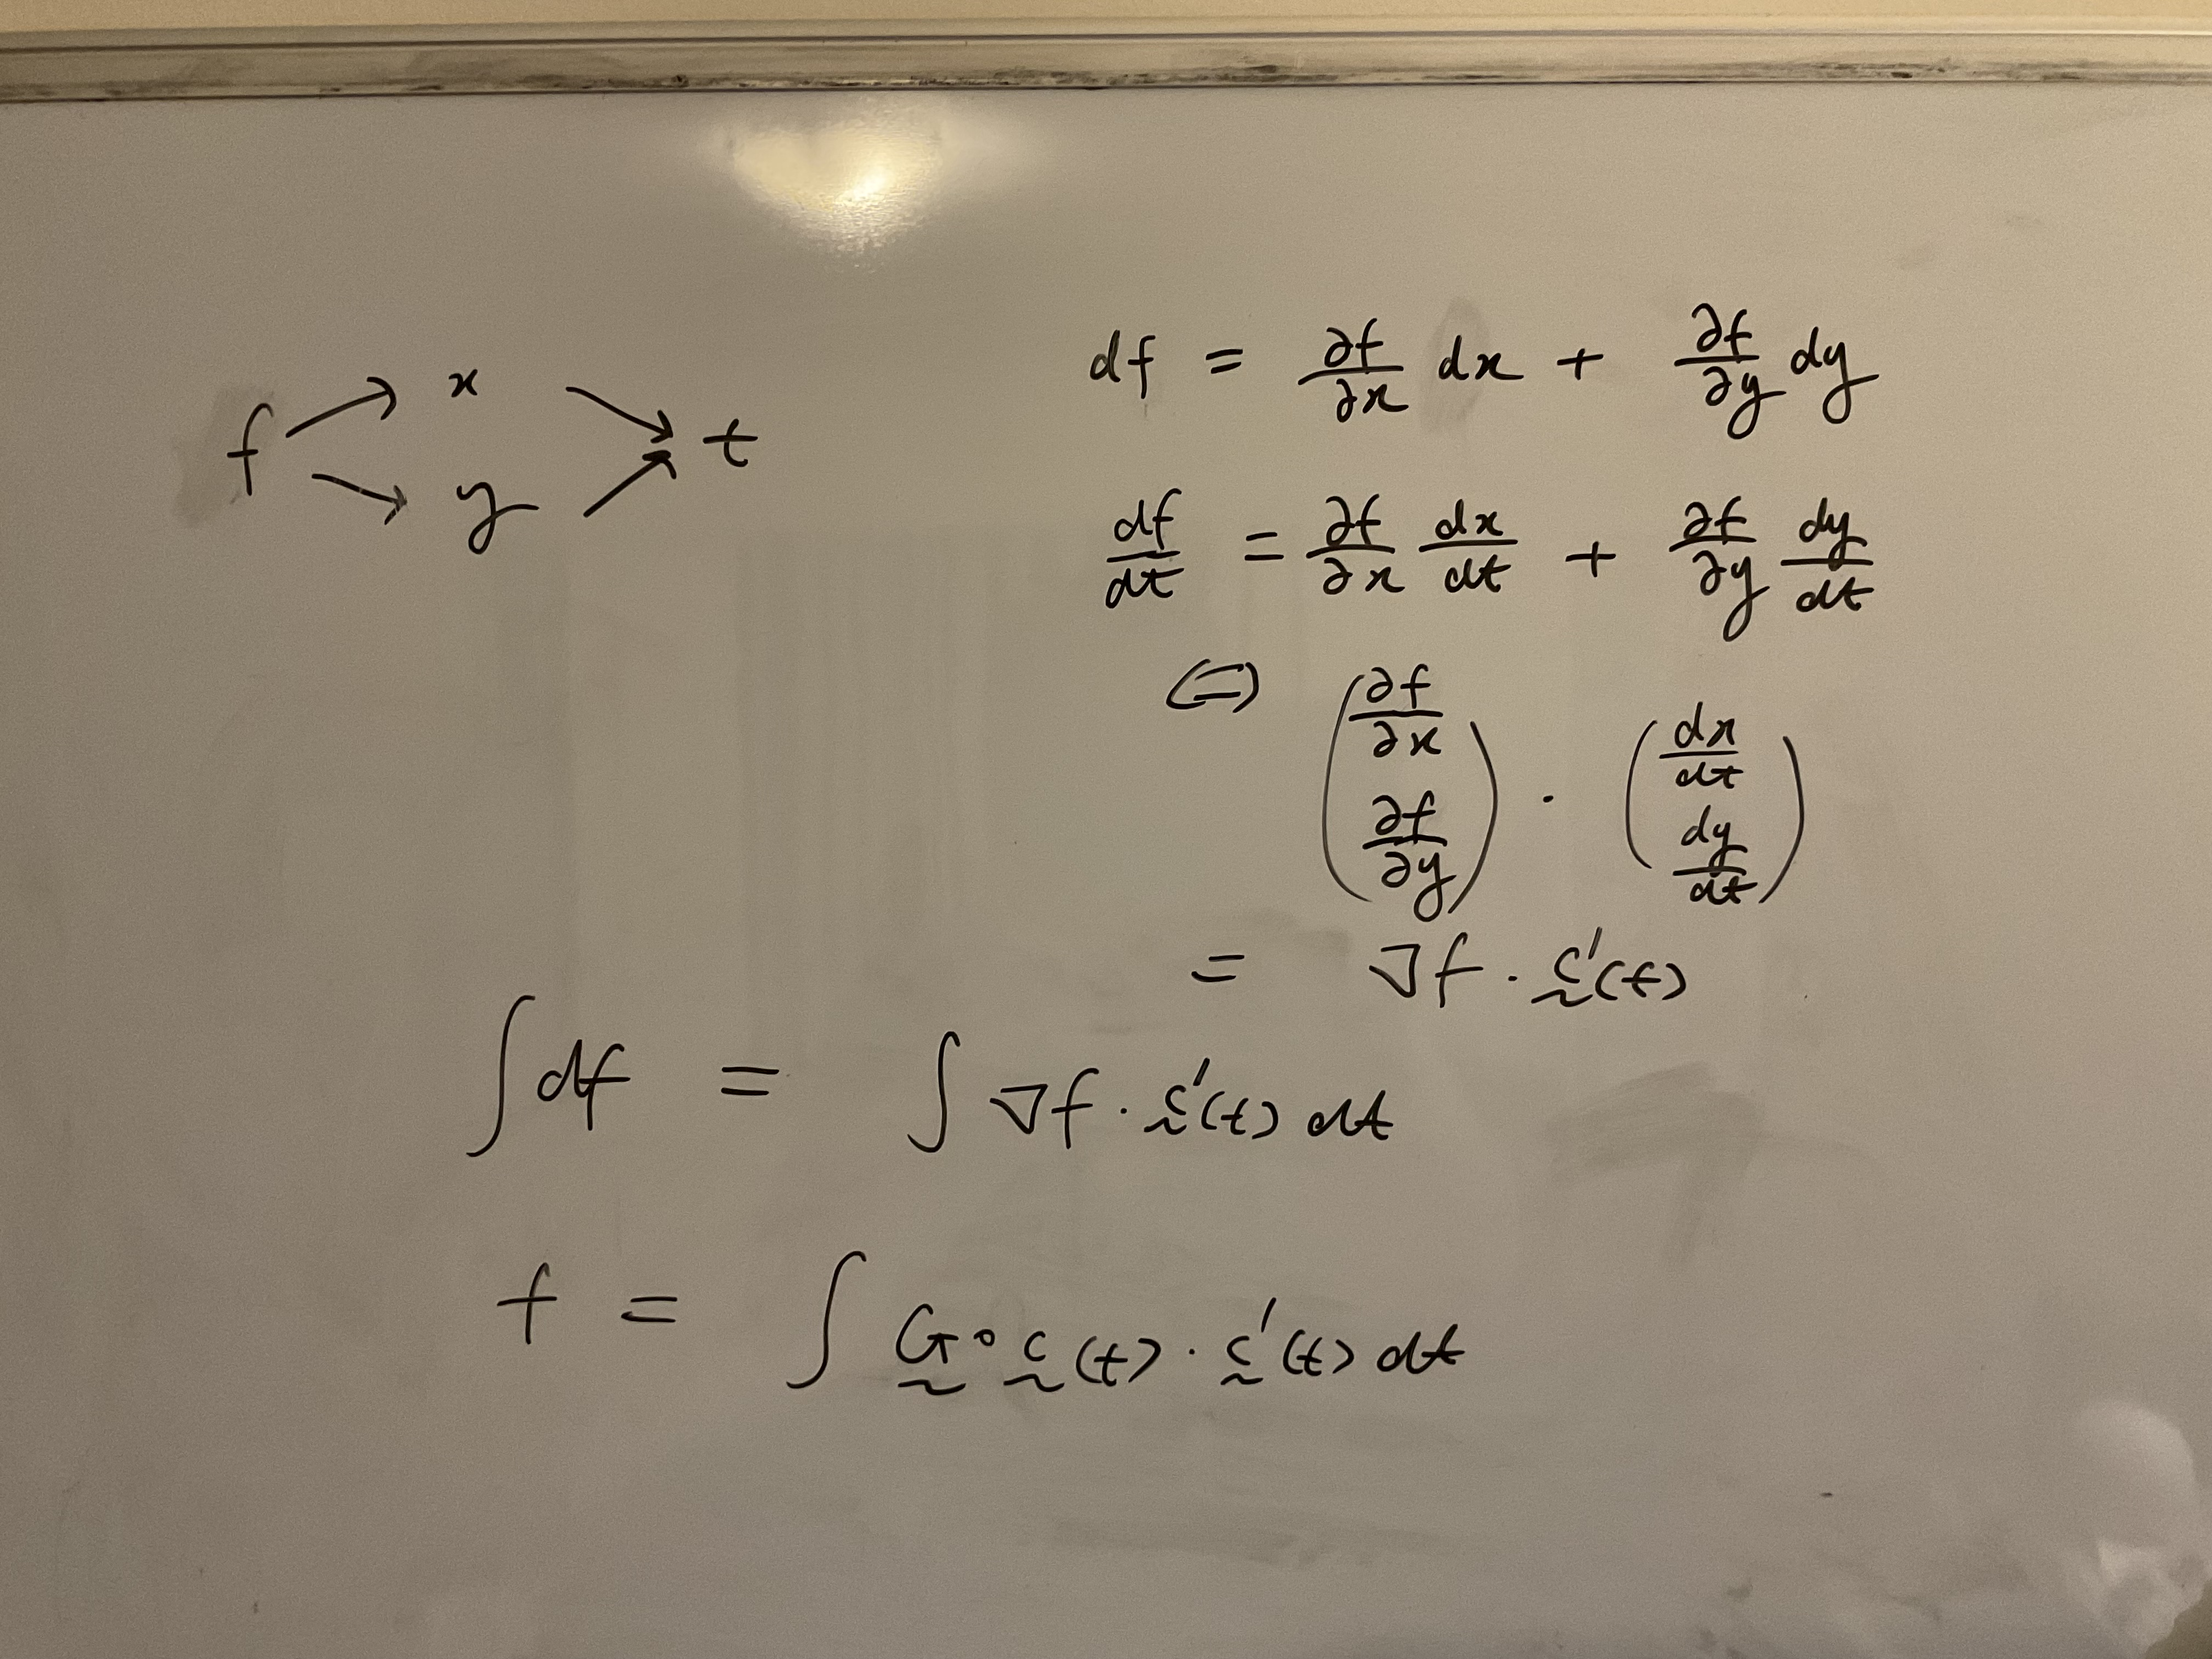 f → x → t
f → y → t
df = ∂f/∂x dx + ∂f/∂y dy
df/dt = ∂f/∂x dx/dt + ∂f/∂y dy/dt
(=) (∂f/∂x ∂f/∂y) · (dx/dt dy/dt)
= ∇f · c̰′(t)
∫ df = ∫ ∇f · c̰′(t) dt
f = ∫ G̰ ∘ c̰(t) · c̰′(t) dt